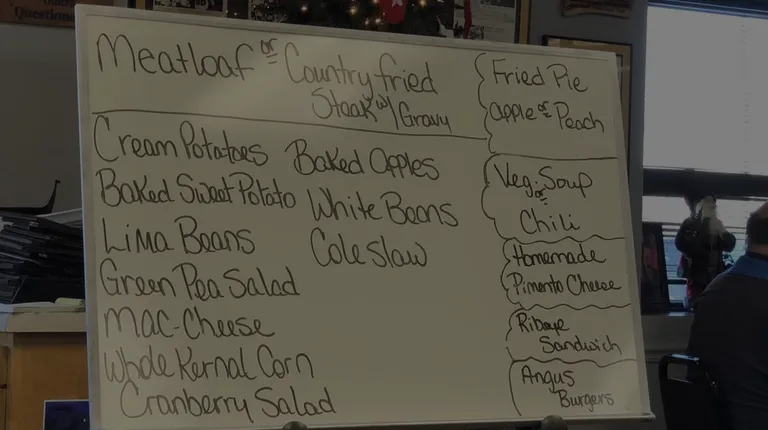 Questions
Meatloaf or Country fried
Steak w/ Gravy
Cream Potatoes
Baked Sweet Potato
Lima Beans
Green Pea Salad
Mac-Cheese
Whole Kernal Corn
Cranberry Salad
Baked Apples
White Beans
Cole Slaw
Fried Pie
Apple or Peach
Veg. Soup
or
Chili
Homemade
Pimento Cheese
Ribeye
Sandwich
Angus
Burgers